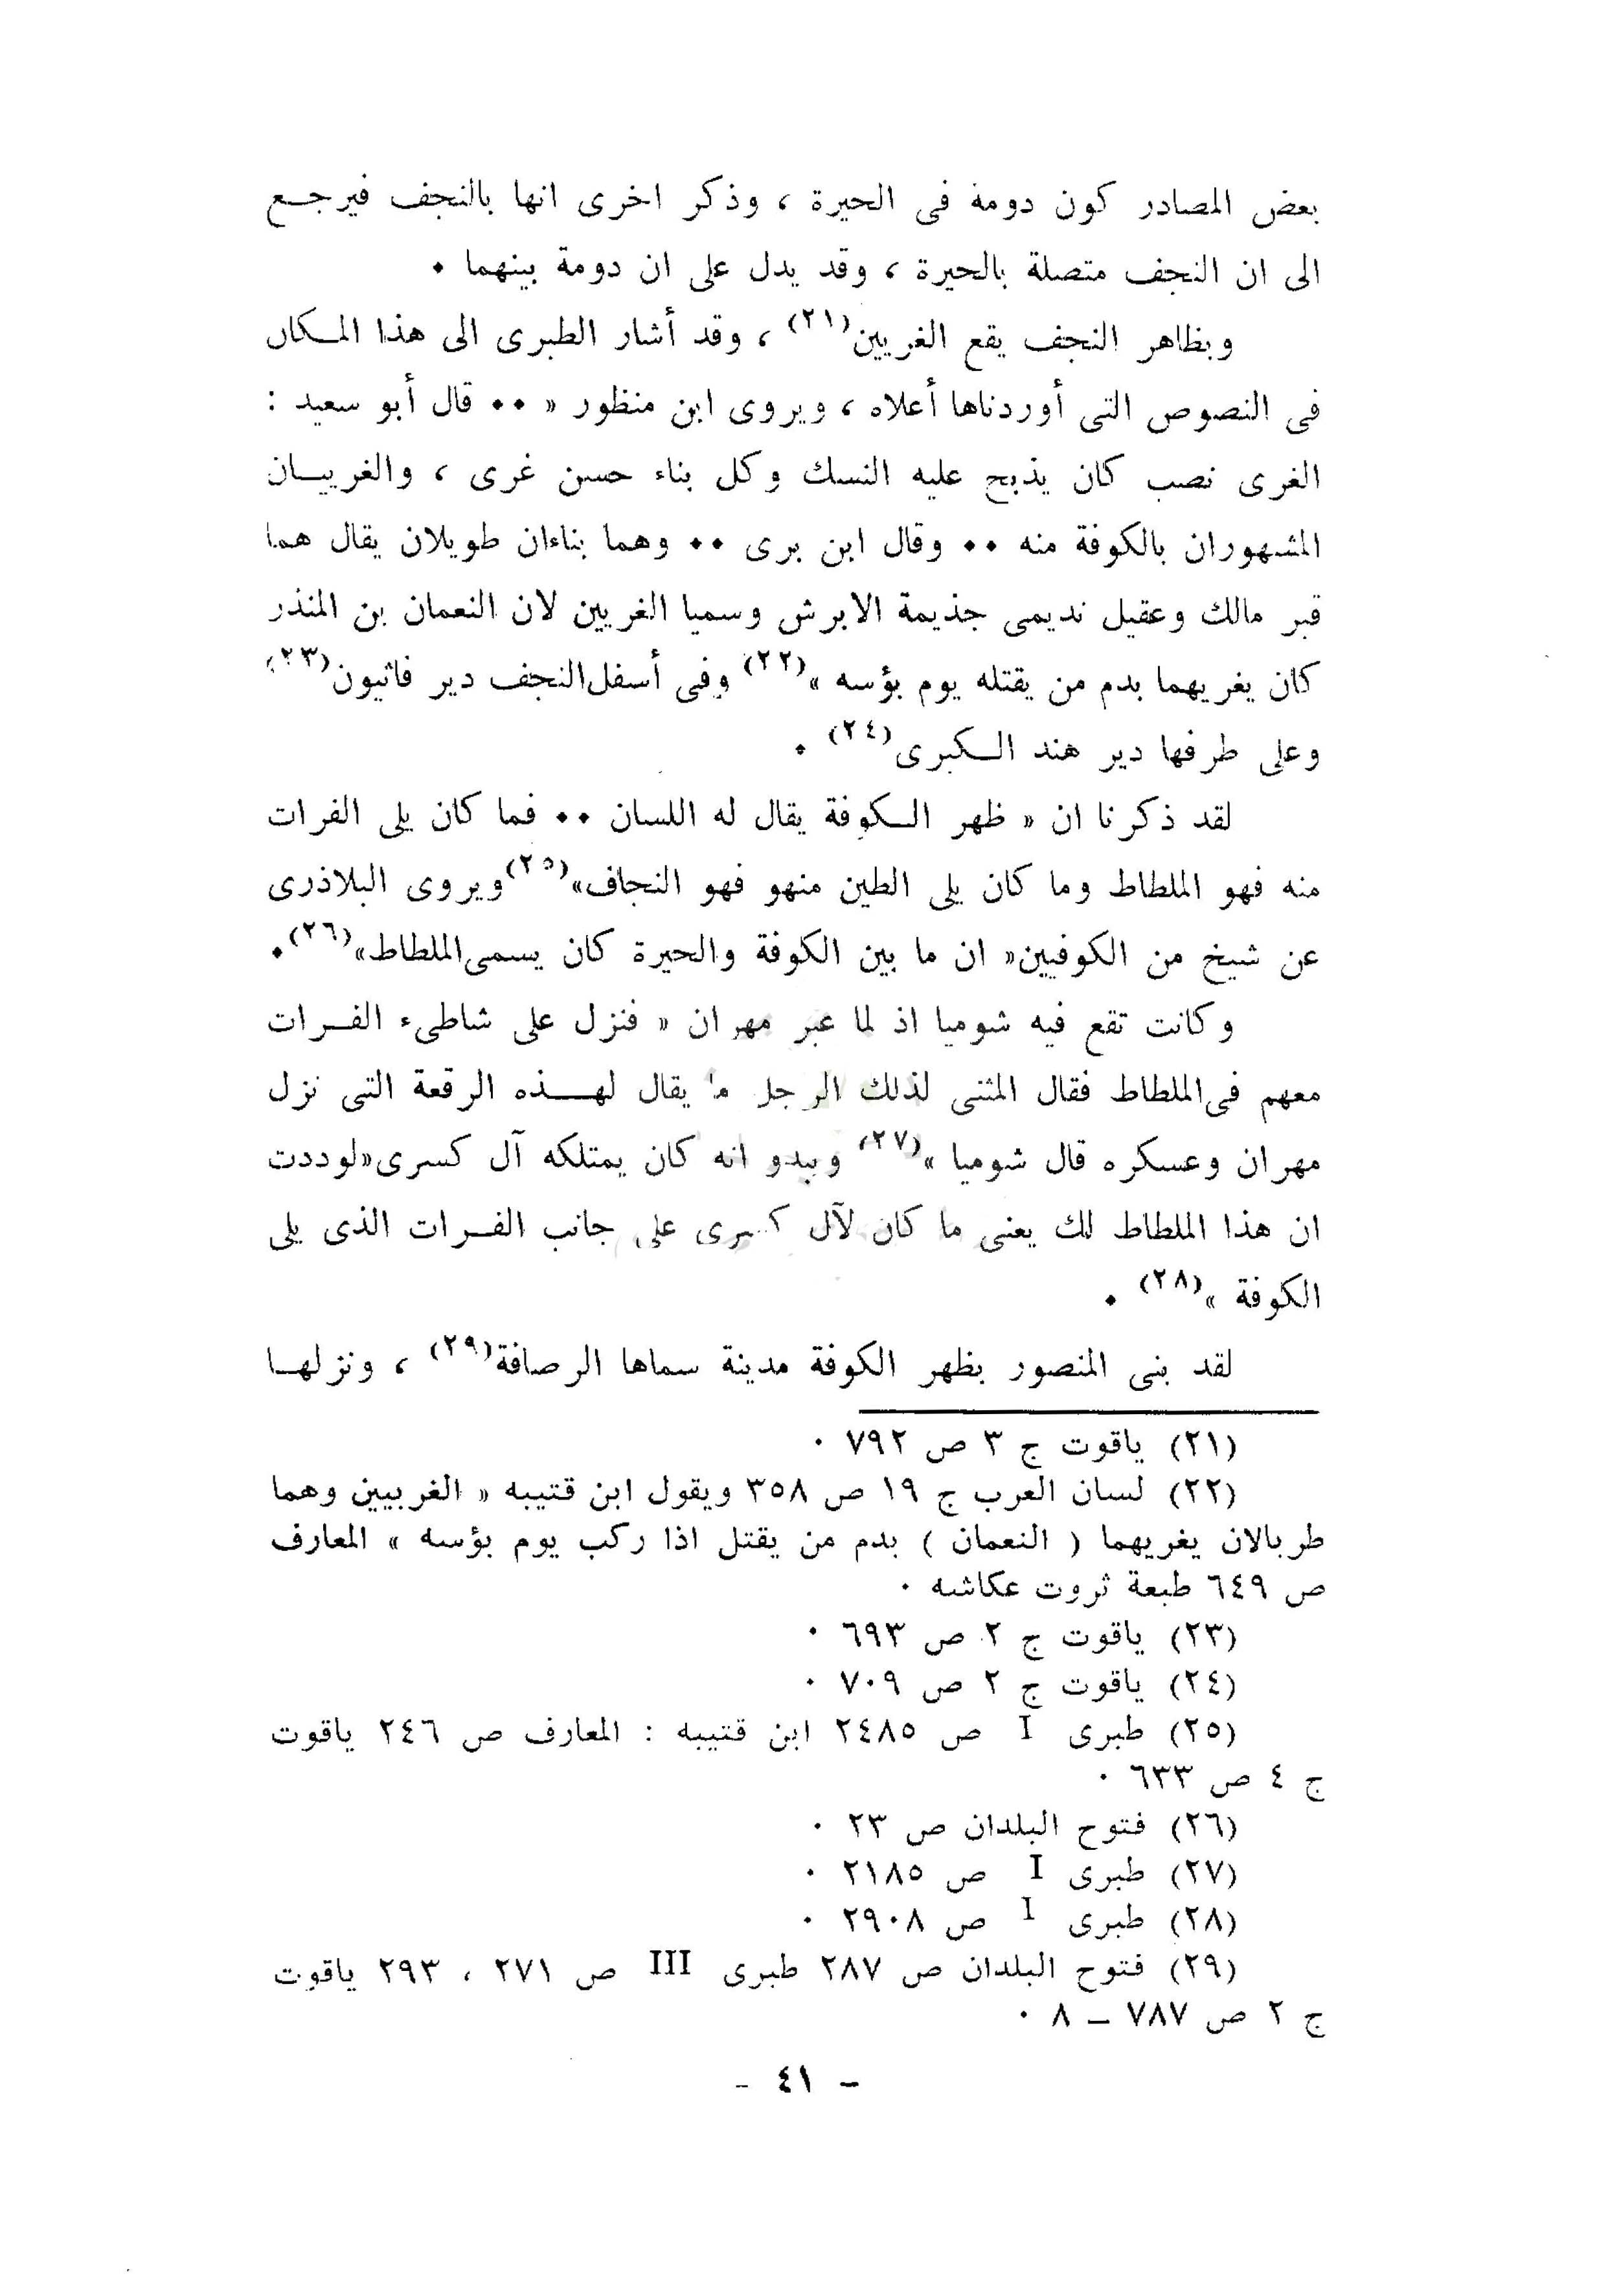 بعض المصادر كون دومة فى الحيرة ، وذكر اخرى انها بالنجف فيرجــع
الى ان النجف متصلة بالحيرة ، وقد يدل على ان دومة بينهما •
وبظاهر النجف يقع الغريين(٢١) ، وقد أشار الطبرى الى هذا المـكان
فى النصوص التى أوردناها أعلاه ، ويروى ابن منظور « •• قال أبو سعيد :
الغرى نصب كان يذبح عليه النسك وكل بناء حسن غرى ، والغريــان
المشهوران بالكوفة منه •• وقال ابن برى •• وهما بناءان طويلان يقال هما
قبر مالك وعقيل نديمى جذيمة الابرش وسميا الغريين لان النعمان بن المنذر
كان يغريهما بدم من يقتله يوم بؤسه »(٢٢) وفى أسفل النجف دير فاثيون(٢٣)
وعلى طرفها دير هند الـكبرى(٢٤) •
لقد ذكرنا ان « ظهر الـكوفة يقال له اللسان •• فما كان يلى الفرات
منه فهو الملطاط وما كان يلى الطين منهو فهو النجاف»(٢٥) ويروى البلاذرى
عن شيخ من الكوفيين« ان ما بين الكوفة والحيرة كان يسمى الملطاط»(٢٦)•
وكانت تقع فيه شوميا اذ لما عبر مهران « فنزل على شاطىء الفــرات
معهم فى الملطاط فقال المثنى لذلك الرجل ما يقال لهـــذه الرقعة التى نزل
مهران وعسكره قال شوميا »(٢٧) ويبدو انه كان يمتلكه آل كسرى«لوددت
ان هذا الملطاط لك يعنى ما كان لآل كسرى على جانب الفــرات الذى يلى
الكوفة »(٢٨) •
لقد بنى المنصور بظهر الكوفة مدينة سماها الرصافة(٢٩) ، ونزلهــا
(٢١) ياقوت ج ٣ ص ٧٩٢ •
(٢٢) لسان العرب ج ١٩ ص ٣٥٨ ويقول ابن قتيبه « الغربيين وهما
طربالان يغريهما ( النعمان ) بدم من يقتل اذا ركب يوم بؤسه » المعارف
ص ٦٤٩ طبعة ثروت عكاشه •
(٢٣) ياقوت ج ٢ ص ٦٩٣ •
(٢٤) ياقوت ج ٢ ص ٧٠٩ •
(٢٥) طبرى I ص ٢٤٨٥ ابن قتيبه : المعارف ص ٢٤٦ ياقوت
ج ٤ ص ٦٣٣ •
(٢٦) فتوح البلدان ص ٢٣ •
(٢٧) طبرى I ص ٢١٨٥ •
(٢٨) طبرى I ص ٢٩٠٨ •
(٢٩) فتوح البلدان ص ٢٨٧ طبرى III ص ٢٧١ ، ٢٩٣ ياقوت
ج ٢ ص ٧٨٧ – ٨ •
- ٤١ -